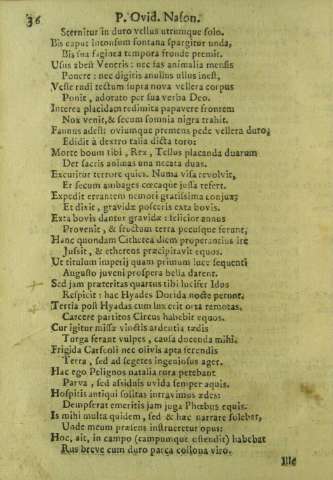 36
P. Ovid. Nason.
Sternitur in duro vellus utrumque solo.
Bis caput intonsum fontana spargitur unda,
Bis sua faginea tempora fronde premit.
Usus abest Veneris: nec fas animalia mensis
Ponere: nec digitis anulus ullus inest,
Veste rudi tectum supra nova vellera corpus
Ponit, adorato per sua verba Deo.
Interea placidam redimita papavere frontem
Nox venit, & secum somnia nigra trahit.
Faunus adest: oviumque premens pede vellera duro,
Edidit à dextro talia dicta toro:
Morte boum tibi, Rex, Tellus placanda duarum
Det sacris animas una necata duas.
Excutitur terrore quies. Numa visa revolvit,
Et secum ambages cœcaque jussa refert.
Expedit errantem nemori gratissima conjux;
Et dixit, gravidæ posceris exta bovis.
Exta bovis dantur gravidæ: felicior annus
Provenit, & fructum terra pecusque ferunt,
Hanc quondam Citherea diem properantius ire
Jussit, & ethereos præcipitavit equos.
Ut titulum imperij quam primum luce sequenti
Augusto juveni prospera bella darent.
Sed jam præteritas quartus tibi lucifer Idos
Respicit: hac Hyades Dorida nocte petunt.
Tertia post Hyadas cum lux erit orta remotas,
Carcere partitos Circus habebit equos.
Cur igitur missæ vinctis ardentia tædis
Terga ferant vulpes, causa docenda mihi.
Frigida Carseoli nec olivis apta ferendis
Terra, sed ad segetes ingeniosus ager.
Hac ego Pelignos natalia rura petebam
Parva, sed assiduis uvida semper aquis.
Hospitis antiqui solitas intravimus ædes:
Dempserat emeritis jam juga Phœbus equis.
Is mihi multa quidem, sed & hæc narrare solebat,
Unde meum præsens instrueretur opus:
Hoc, ait, in campo (campumque ostendit) habebat
Rus breve cum duro parca colona viro.
Ille